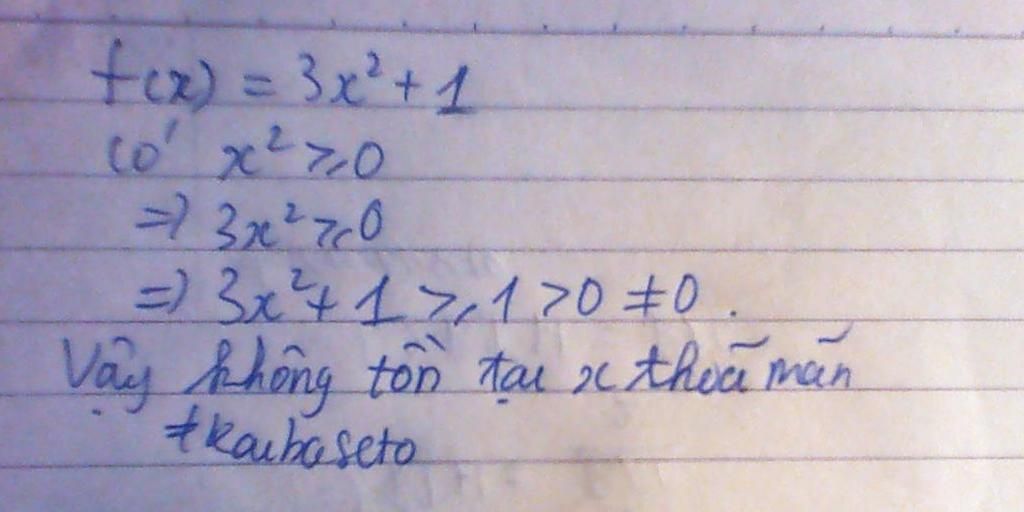 f(x) = 3x² + 1
Có x² ≥ 0
=> 3x² ≥ 0
=> 3x² + 1 ≥ 1 > 0 ≠ 0 .
Vậy không tồn tại x thoã mãn
≠kaibaseto